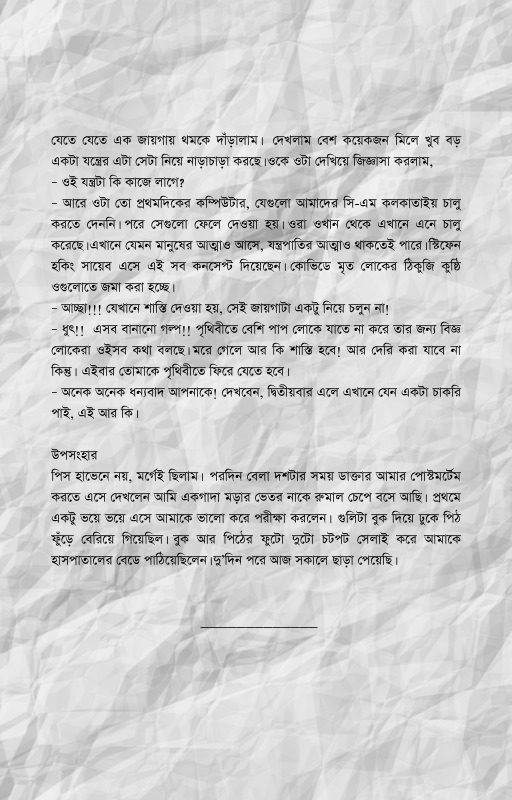 যেতে যেতে এক জায়গায় থমকে দাঁড়ালাম। দেখলাম বেশ কয়েকজন মিলে খুব বড়
একটা যন্ত্রের এটা সেটা নিয়ে নাড়াচাড়া করছে।ওকে ওটা দেখিয়ে জিজ্ঞাসা করলাম,
- ওই যন্ত্রটা কি কাজে লাগে?
- আরে ওটা তো প্রথমদিকের কম্পিউটার, যেগুলো আমাদের সি-এম কলকাতাইয় চালু
করতে দেননি।পরে সেগুলো ফেলে দেওয়া হয়।ওরা ওখান থেকে এখানে এনে চালু
করেছে।এখানে যেমন মানুষের আত্মাও আসে, যন্ত্রপাতির আত্মাও থাকতেই পারে।স্টিফেন
হকিং সায়েব এসে এই সব কনসেপ্ট দিয়েছেন।কোভিডে মৃত লোকের ঠিকুজি কুষ্ঠি
ওগুলোতে জমা করা হচ্ছে।
- আচ্ছা!!! যেখানে শাস্তি দেওয়া হয়, সেই জায়গাটা একটু নিয়ে চলুন না!
- ধুৎ!! এসব বানানো গল্প!! পৃথিবীতে বেশি পাপ লোকে যাতে না করে তার জন্য বিজ্ঞ
লোকেরা ওইসব কথা বলছে।মরে গেলে আর কি শাস্তি হবে! আর দেরি করা যাবে না
কিন্তু। এইবার তোমাকে পৃথিবীতে ফিরে যেতে হবে।
- অনেক অনেক ধন্যবাদ আপনাকে! দেখবেন, দ্বিতীয়বার এলে এখানে যেন একটা চাকরি
পাই, এই আর কি।
উপসংহার
পিস হাভেনে নয়, মর্গেই ছিলাম। পরদিন বেলা দশটার সময় ডাক্তার আমার পোস্টমর্টেম
করতে এসে দেখলেন আমি একগাদা মড়ার ভেতর নাকে রুমাল চেপে বসে আছি। প্রথমে
একটু ভয়ে ভয়ে এসে আমাকে ভালো করে পরীক্ষা করলেন। গুলিটা বুক দিয়ে ঢুকে পিঠ
ফুঁড়ে বেরিয়ে গিয়েছিল। বুক আর পিঠের ফুটো দুটো চটপট সেলাই করে আমাকে
হাসপাতালের বেডে পাঠিয়েছিলেন।দু'দিন পরে আজ সকালে ছাড়া পেয়েছি।